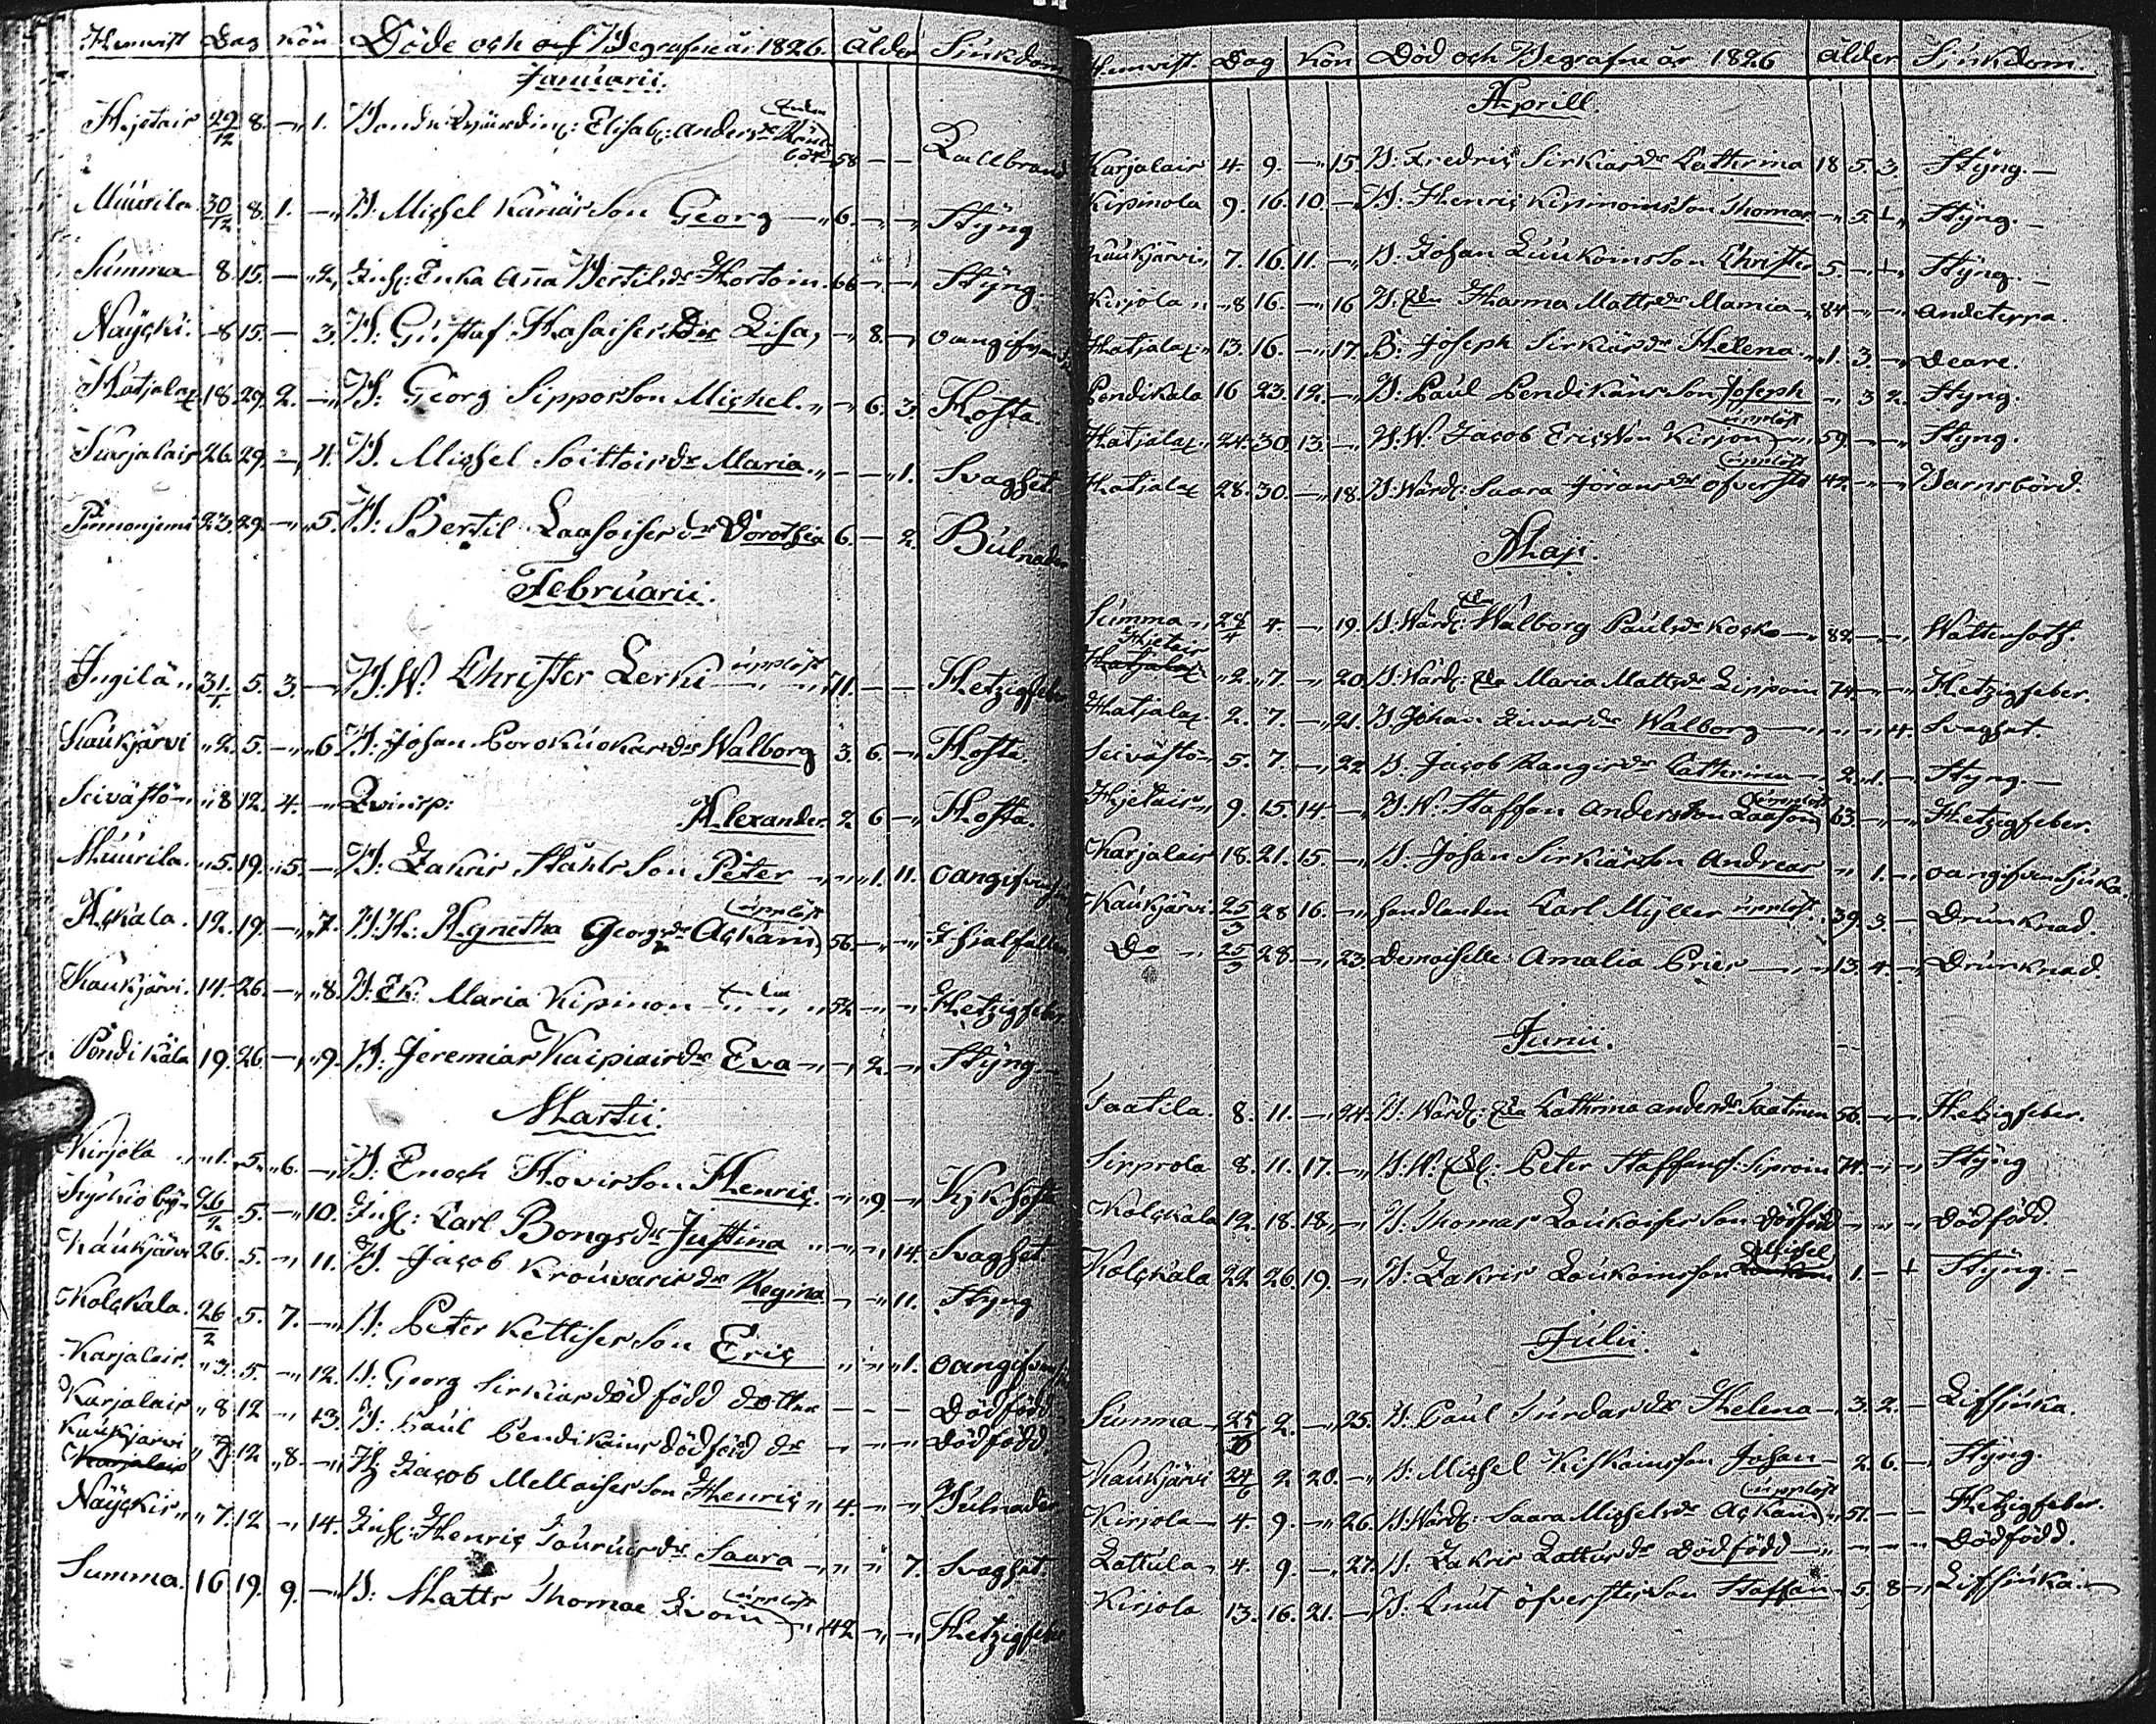 Hemvist Dag Kön Döde och Begrafne år 1826. Ålder Siukdom
Januarii.
Hjetais 29/12 8. — 1. Elisab: Anders dr 58 — — Kallbrand
Muurila 30/12 8. 1. — B: Michel Känär Son Georg — 6. — — Styng
Summa 8 15. — 2. Inh: Enka Anna Bertils dr Hortoin 66 — — Styng
Näycki. 8 15. — 3. B: Gustaf Hasaises Dr Lisa, — 8. — oangifven
Hatjalax. 18. 29. 2. — B: Georg Sippos Son Michel. — 6. 3. Hosta.
Karjalais 26. 29. — 4. B. Michel Soittois dr Maria — — 1. Svaghet
23. 29. — 5. B: Bertil Laasoises dr Dorothea 6. — 2. Bulnader
Februarii.
Ingilä 31/1 5. 3. — B. W. Christer Lerki upplöst 71. — — Hetzigfeber
Kaukjärvi 2. 5. — 6 B: Johan Porokuokas dr Walborg 3. 6 — Hosta.
Seivästö 8 12. 4. — Qvinsp: Alexander 2 6 — Hosta.
Muurila 5. 19. 5. — B: Zakris Ståhls Son Peter — 1. 11. oangifven
Ackala. 12. 19. — 7. B: H: Agnetha Georgs dr Ackain upplöst 56. — — Ihjälfallen
Kaukjärvi. 14. 26. — 8. B: Ek: Maria Kipinon 52 — — Hetzigfeber
Pendikälä 19. 26. — 9. B: Jeremias Kaipiais dr Eva — 2. — Styng
Martii.
Kirjola 1. 5. 6. — B: Enoch Hovis Son Henric. — 9 — Kikhosta
Kyrkioby 26/2 5. — 10. Inh: Carl Bongs dr Justina — — 14. Svaghet
Kaukjärvi 26. 5. — 11. B. Jacob Krouvaris dr Regina — — 11. Styng
Kolckala. 26/2 5. 7. — B: Peter Kettises Son Eric — — 1. oangifven
Karjalais. 3. 5. — 12. B: Georg Sirkias död född dotter — — — Dödfödd
Karjalais 8 12 — 13. B: Paul Pendikains dödfödd dr — — — Dödfödd
Kaukjärvi
Karjalais 7 12 8. — B Jacob Mellaises Son Henric 4. — — Bulnader
Näyckis 7. 12 — 14. Inh: Henric Touruis dr Saara — — 7. Svaghet
Summa. 16 19. 9. — B: Matts Thomae Ivoin upplöst 42 — — Hetzigfeber
Hemvist. Dag Kön Död och Begrafne år 1826 Ålder Siukdom.
Aprill.
Karjalais 4. 9. — 15. B: Fredric Sirkias dr Cathrina 18 5. 3. Styng. —
Kipinola 9. 16. 10. — B: Henric Kipinoins Son Thomas — 5. 1 Styng. —
Kaukjärvi 7. 16. 11. — B: Johan Luukoins Son Christer 5. — Styng. —
Kirjola 8 16. — 16 B. Hanna Matts dr Mamia — 84 — — Andetepa.
Hatjalax. 13. 16. — 17. B: Joseph Sirkiäs dr Helena 1. 3. — Deare.
Pendikala 16 23. 12. — B: Paul Pendikäns Son Joseph — 3 2. Styng.
Hatjalax. 24. 30. 13. — B. W. Jacob Ericsson Kirjon upplöst 59. — — Styng.
Hatjalax 28. 30. — 18. B. Wärd: Saara Jörans dr öfverste upplöst 42. — — Barnsbörd.
Maji.
Summa 28/4 4. — 19. B. Wärd: Walborg Pauls dr Kocko 82. — — Wattensot.
Hjetais
Hatjalax 2. 7. — 20. B. Wärd: Maria Matts dr Lippoin 74. — — Hetzigfeber.
Hatjalax. 2. 7. — 21. B Johan dr Walborg — — 4. Svaghet.
Seivästö 5. 7. — 22 B. Jacob Rangis dr Cathrina — 2. 1. — Styng. —
Hjetais 9. 15. 14. — B. W. Staffan Andersson Laason upplöst 63. — — Hetzigfeber.
Karjalais 18. 21. 15. — B. Johan Sirkiäs Son Andreas — 1. — oangifven Sjuka.
Kaukjärvi. 25/3 28 16. — Handlanden Carl Myller upplöst. 39. 3. — Drunknad.
Do 25/3 28. — 23. Demoiselle Amalia Pries — 13. 4. — Drunknad.
Junii.
Taatila. 8. 11. — 24. B. Wärd: Cathrina Anders dr Taatinen 56. — — Hetzigfeber.
Sipprola 8. 11. 17. — B. W. Peter Staffans: Siproin 74. — — Styng
Kolckala 12. 18. 18. — B. Thomas Loukoises Son Dödfödd — — — Dödfödd.
Kolckala 22. 26. 19. — B: Zakris Loukoins Son Michel 1. — Styng. —
Julii.
Summa 25/6 2. — 25. B. Paul Surdas dr Helena — 3. 2. — Lifsiuka.
Kaukjärvi 24/6 2 20. — B: Michel Kiskoins Son Johan — 2. 6. — Styng.
Kirjola 4. 9. — 26. B. Wärd: Saara Michels dr Ackain upplöst 57. — — Hetzigfeber.
Lattula 4. 9. — 27. B. Zakris Lattus dr Dödfödd — — — Dödfödd.
Kirjola 13. 16. 21. — B: Knut öfverstes Son Staffan 5. 8 — Lifsiuka.